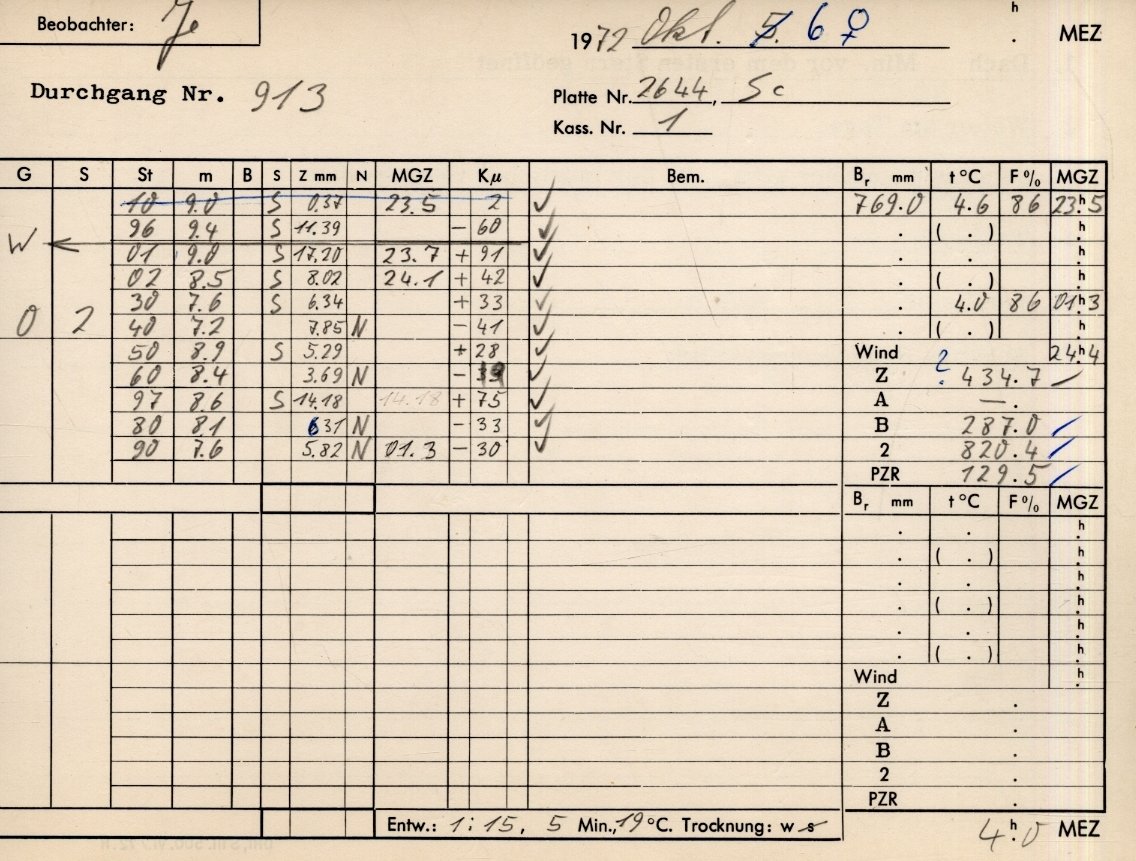 Beobachter: Je
1972 Okt. 5. 6 ♀ h . MEZ
Durchgang Nr. 913
Platte Nr. 2644, Sc
Kass. Nr. 1
G S St m B S Z mm N MGZ Kμ Bem. Br mm t°C F% MGZ
10 9.0 S 0.37 23.5 2 ✓ 769.0 4.6 86 23h5
96 9.4 S 11.39 - 60 ✓ . ( . ) h.
W ← 01 9.0 S 17.20 23.7 + 91 ✓ . . h.
02 8.5 S 8.02 24.1 + 42 ✓ . ( . ) h.
30 7.6 S 6.34 + 33 ✓ . 4.0 86 01h3
0 2 40 7.2 7.85 N - 41 ✓ . ( . ) h.
50 8.9 S 5.29 + 28 ✓ Wind 24h4
60 8.4 3.69 N - 19 ✓ Z ? 434.7 ✓
97 8.6 S 14.18 14.18 + 75 ✓ A — .
80 8.1 6 31 N - 33 ✓ B 287.0 ✓
90 7.6 5.82 N 01.3 - 30 ✓ 2 820.4 ✓
PZR 129.5 ✓
Br mm t°C F% MGZ
. . h.
. ( . ) h.
. . h.
. ( . ) h.
. . h.
. ( . ) h.
Wind h.
Z .
A .
B .
2 .
PZR .
Entw.: 1:15, 5 Min., 19°C. Trocknung: w s
4h.0 MEZ